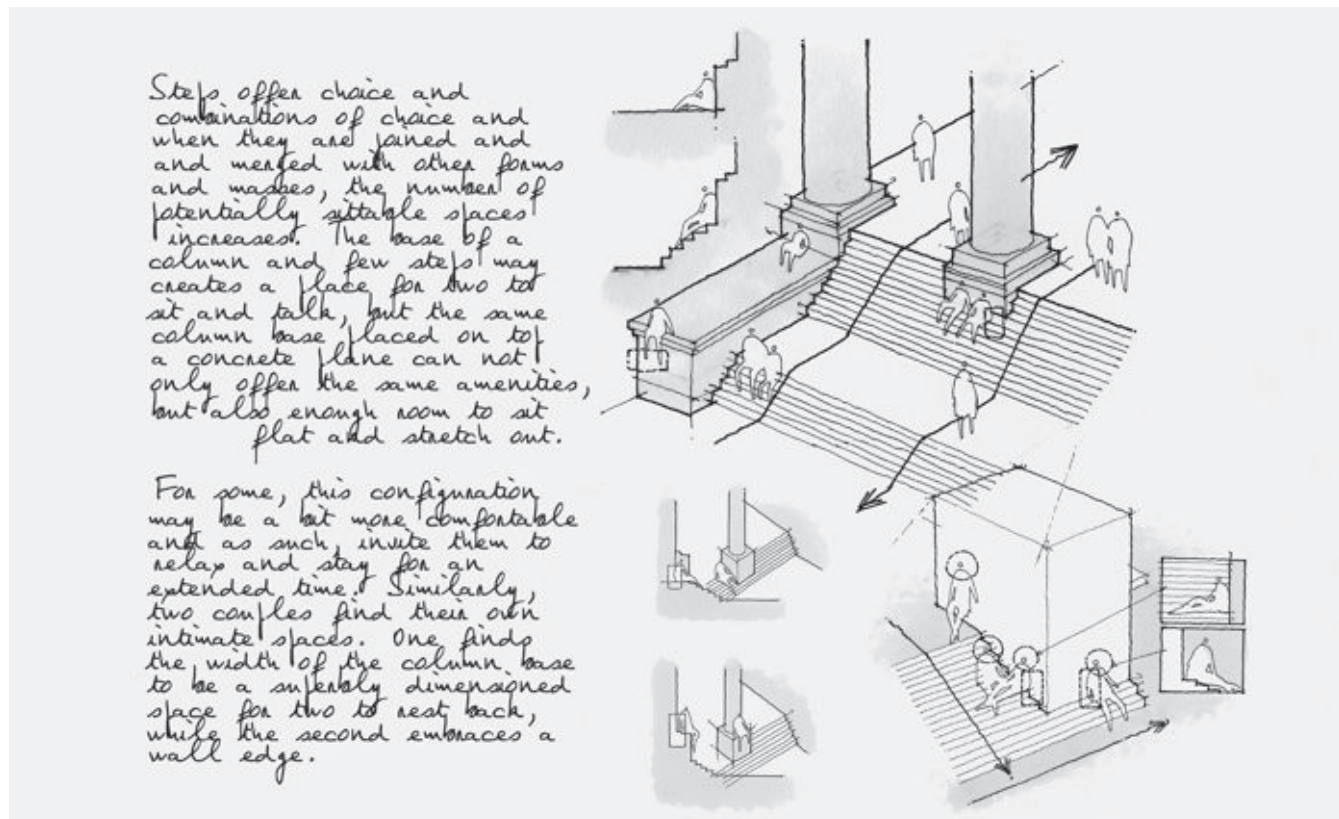 Steps offer choice and
combinations of choice and
when they are joined and
and merged with other forms
and masses, the number of
potentially sittable spaces
increases. The base of a
column and few steps may
creates a place for two to
sit and talk, but the same
column base placed on top
a concrete plane can not
only offer the same amenities,
but also enough room to sit
flat and stretch out.
For some, this configuration
may be a bit more comfortable
and as such, invite them to
relax and stay for an
extended time. Similarly,
two couples find their own
intimate spaces. One finds
the width of the column base
to be a superbly dimensioned
space for two to rest back,
while the second embraces a
wall edge.